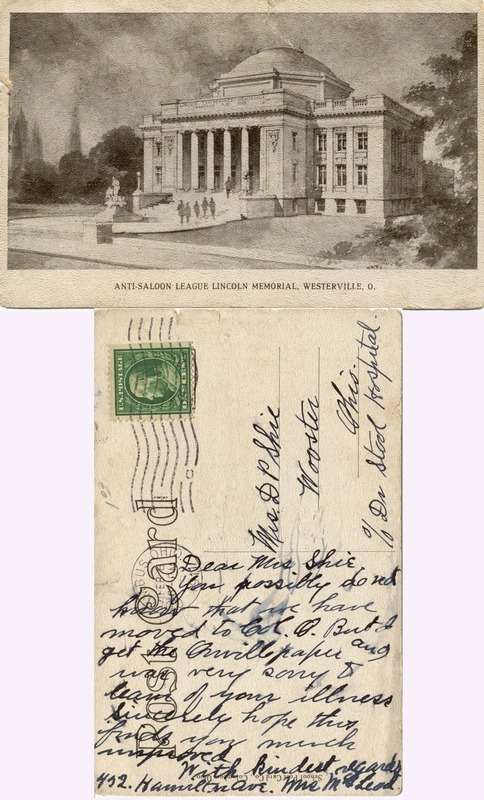 ANTI-SALOON LEAGUE LINCOLN MEMORIAL, WESTERVILLE, O.
U.S. POSTAGE
Post Card
Mrs. D P Shie
Wooster
Ohio.
% Dr Stool Hospital.
Dear Mrs Shie,
You possibly do not
know that we have
moved to Col. O. But I
get the Orrville paper and
was very sorry to
learn of your illness
Sincerely hope this
finds you much
improved
With kindest regards
492. Hamilton Ave. Mrs McLeod